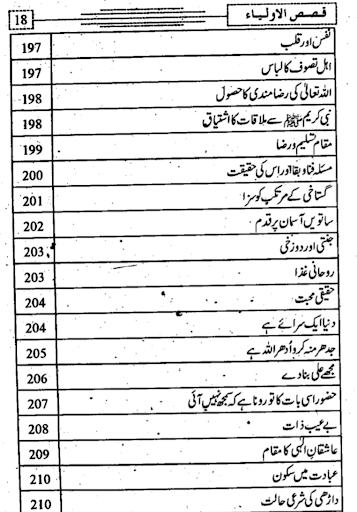 قصص الاولیاء 18
نفس اور قلب 197
اہل تصوف کا لباس 197
اللہ تعالیٰ کی رضامندی کا حصول 198
نبی کریم ﷺ سے ملاقات کا اشتیاق 198
مقام تسلیم و رضا 199
مسئلہ فنا و بقا اور اس کی حقیقت 200
گستاخی کے مرتکب کو سزا 201
ساتویں آسمان پر قدم 202
جنتی اور دوزخی 203
روحانی غذا 203
حقیقی محبت 204
دنیا ایک سرائے ہے 204
جدھر منہ کرو اُدھر اللہ ہے 205
مجھے علی بنا دے 206
حضور اسی بات کا تو رونا ہے کہ سمجھ نہیں آئی 207
بے عیب ذات 208
عاشقان الٰہی کا مقام 209
عبادت میں سکون 210
داڑھی کی شرعی حالت 210